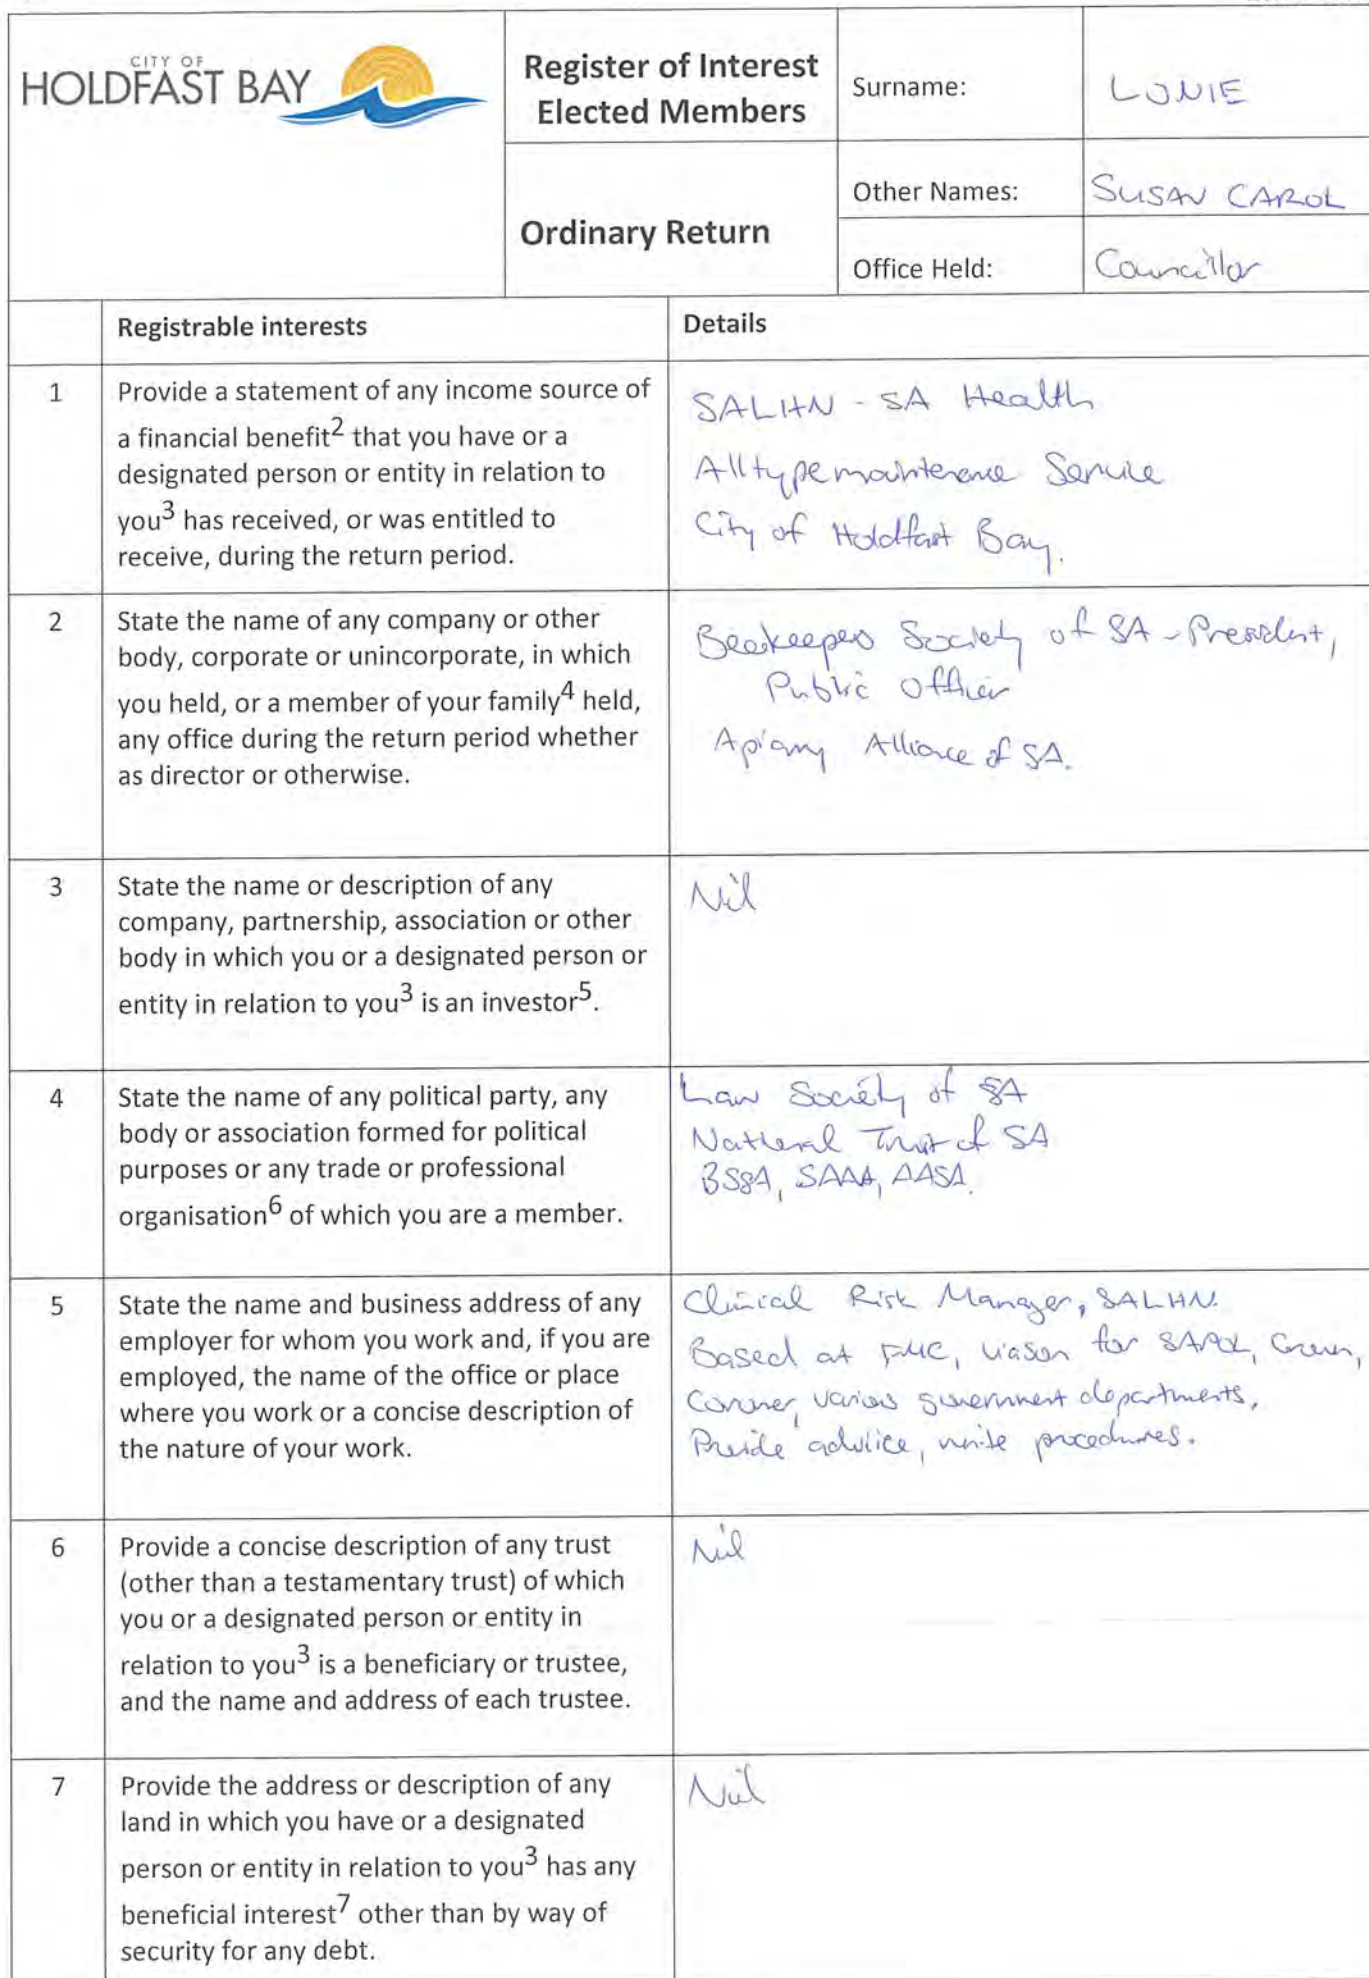 CITY OF
HOLDFAST BAY
Register of Interest
Elected Members
Surname:
LONIE
Ordinary Return
Other Names:
SUSAN CAROL
Office Held:
Councillor
Registrable interests
Details
1
Provide a statement of any income source of
a financial benefit2 that you have or a
designated person or entity in relation to
you3 has received, or was entitled to
receive, during the return period.
SALHN - SA Health
Alltype maintenance Service
City of Holdfast Bay.
2
State the name of any company or other
body, corporate or unincorporate, in which
you held, or a member of your family4 held,
any office during the return period whether
as director or otherwise.
Beekeepers Society of SA - President,
Public Officer
Apiary Alliance of SA.
3
State the name or description of any
company, partnership, association or other
body in which you or a designated person or
entity in relation to you3 is an investor5.
Nil
4
State the name of any political party, any
body or association formed for political
purposes or any trade or professional
organisation6 of which you are a member.
Law Society of SA
National Trust of SA
BSSA, SAAA, AASA.
5
State the name and business address of any
employer for whom you work and, if you are
employed, the name of the office or place
where you work or a concise description of
the nature of your work.
Clinical Risk Manager, SALHN.
Based at FMC, liason for SAPOL, Crown,
Coroner, various government departments,
Provide advice, write procedures.
6
Provide a concise description of any trust
(other than a testamentary trust) of which
you or a designated person or entity in
relation to you3 is a beneficiary or trustee,
and the name and address of each trustee.
Nil
7
Provide the address or description of any
land in which you have or a designated
person or entity in relation to you3 has any
beneficial interest7 other than by way of
security for any debt.
Nil